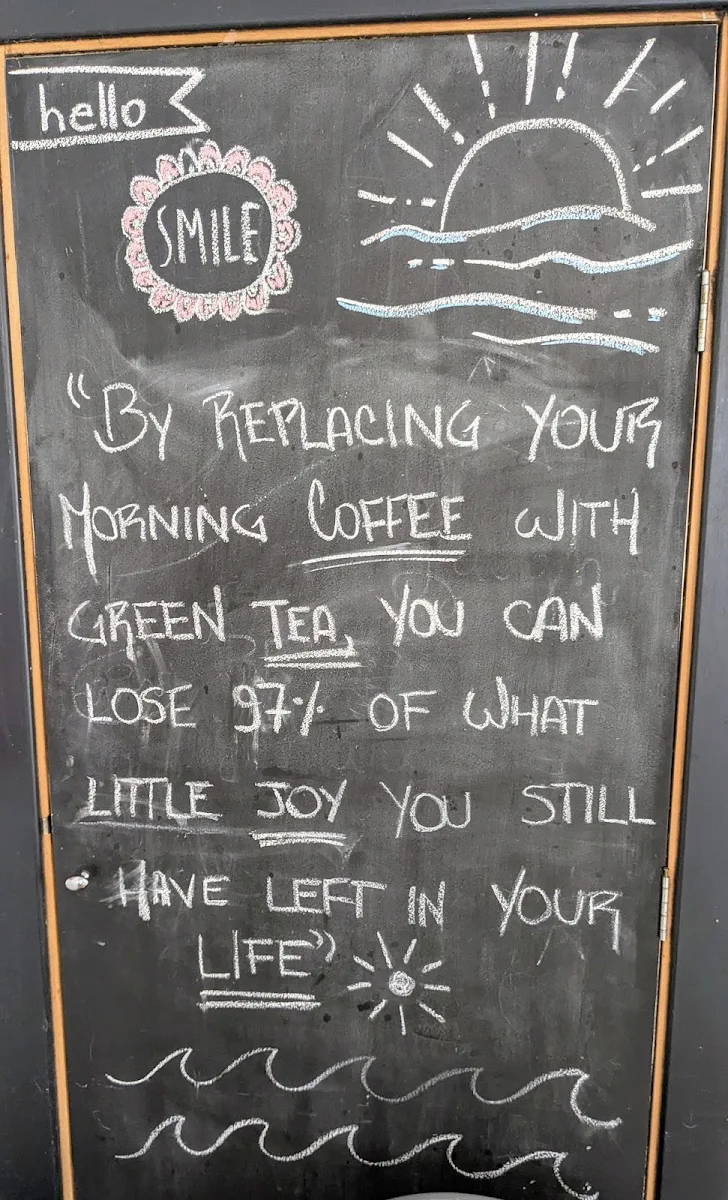 hello
SMILE
"BY REPLACING YOUR
MORNING COFFEE WITH
GREEN TEA, YOU CAN
LOSE 97% OF WHAT
LITTLE JOY YOU STILL
HAVE LEFT IN YOUR
LIFE"